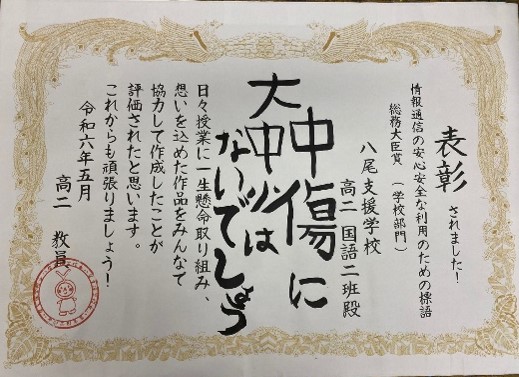 表彰されました!
情報通信の安心安全な利用のための標語
総務大臣賞 (学校部門)
八尾支援学校
高二 国語二班殿
中傷に
大中小は
ないでしょう
日々授業に一生懸命取り組み、
想いを込めた作品をみんなで
協力して作成したことが
評価されたと思います。
これからも頑張りましょう!
令和六年五月
高二 教員